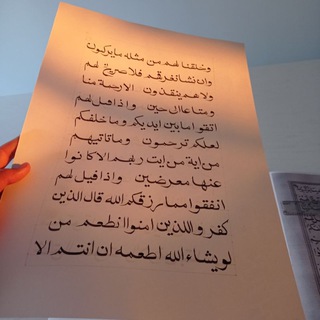 وخلقنا لهم من مثله مايركبون
وان نشا نغرقهم فلا صريخ لهم
ولا هم ينقذون الا رحمة منا
ومتاعا الى حين واذا قيل لهم
اتقوا ما بين ايديكم وما خلفكم
لعلكم ترحمون وما تاتيهم
من اية من ايت ربهم الا كانوا
عنها معرضين واذا قيل لهم
انفقوا مما رزقكم الله قال الذين
كفروا للذين امنوا انطعم من
لو يشاء الله اطعمه ان انتم الا